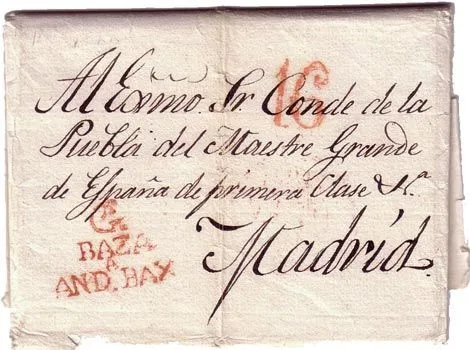 16
Al Exmo. Sr. Conde de la
Puebla del Maestre Grande
de España de primera Clase &.ª
Madrid.
BAZA
AND. BAX